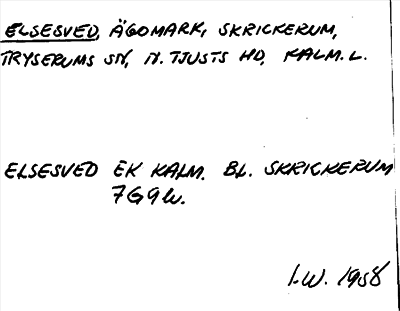 ELSESVED, ÄGOMARK, SKRICKERUM,
TRYSERUMS SN, N. TJUSTS HD, KALM. L.
ELSESVED EK KALM. BL. SKRICKERUM
7G9h.
I.W. 1958